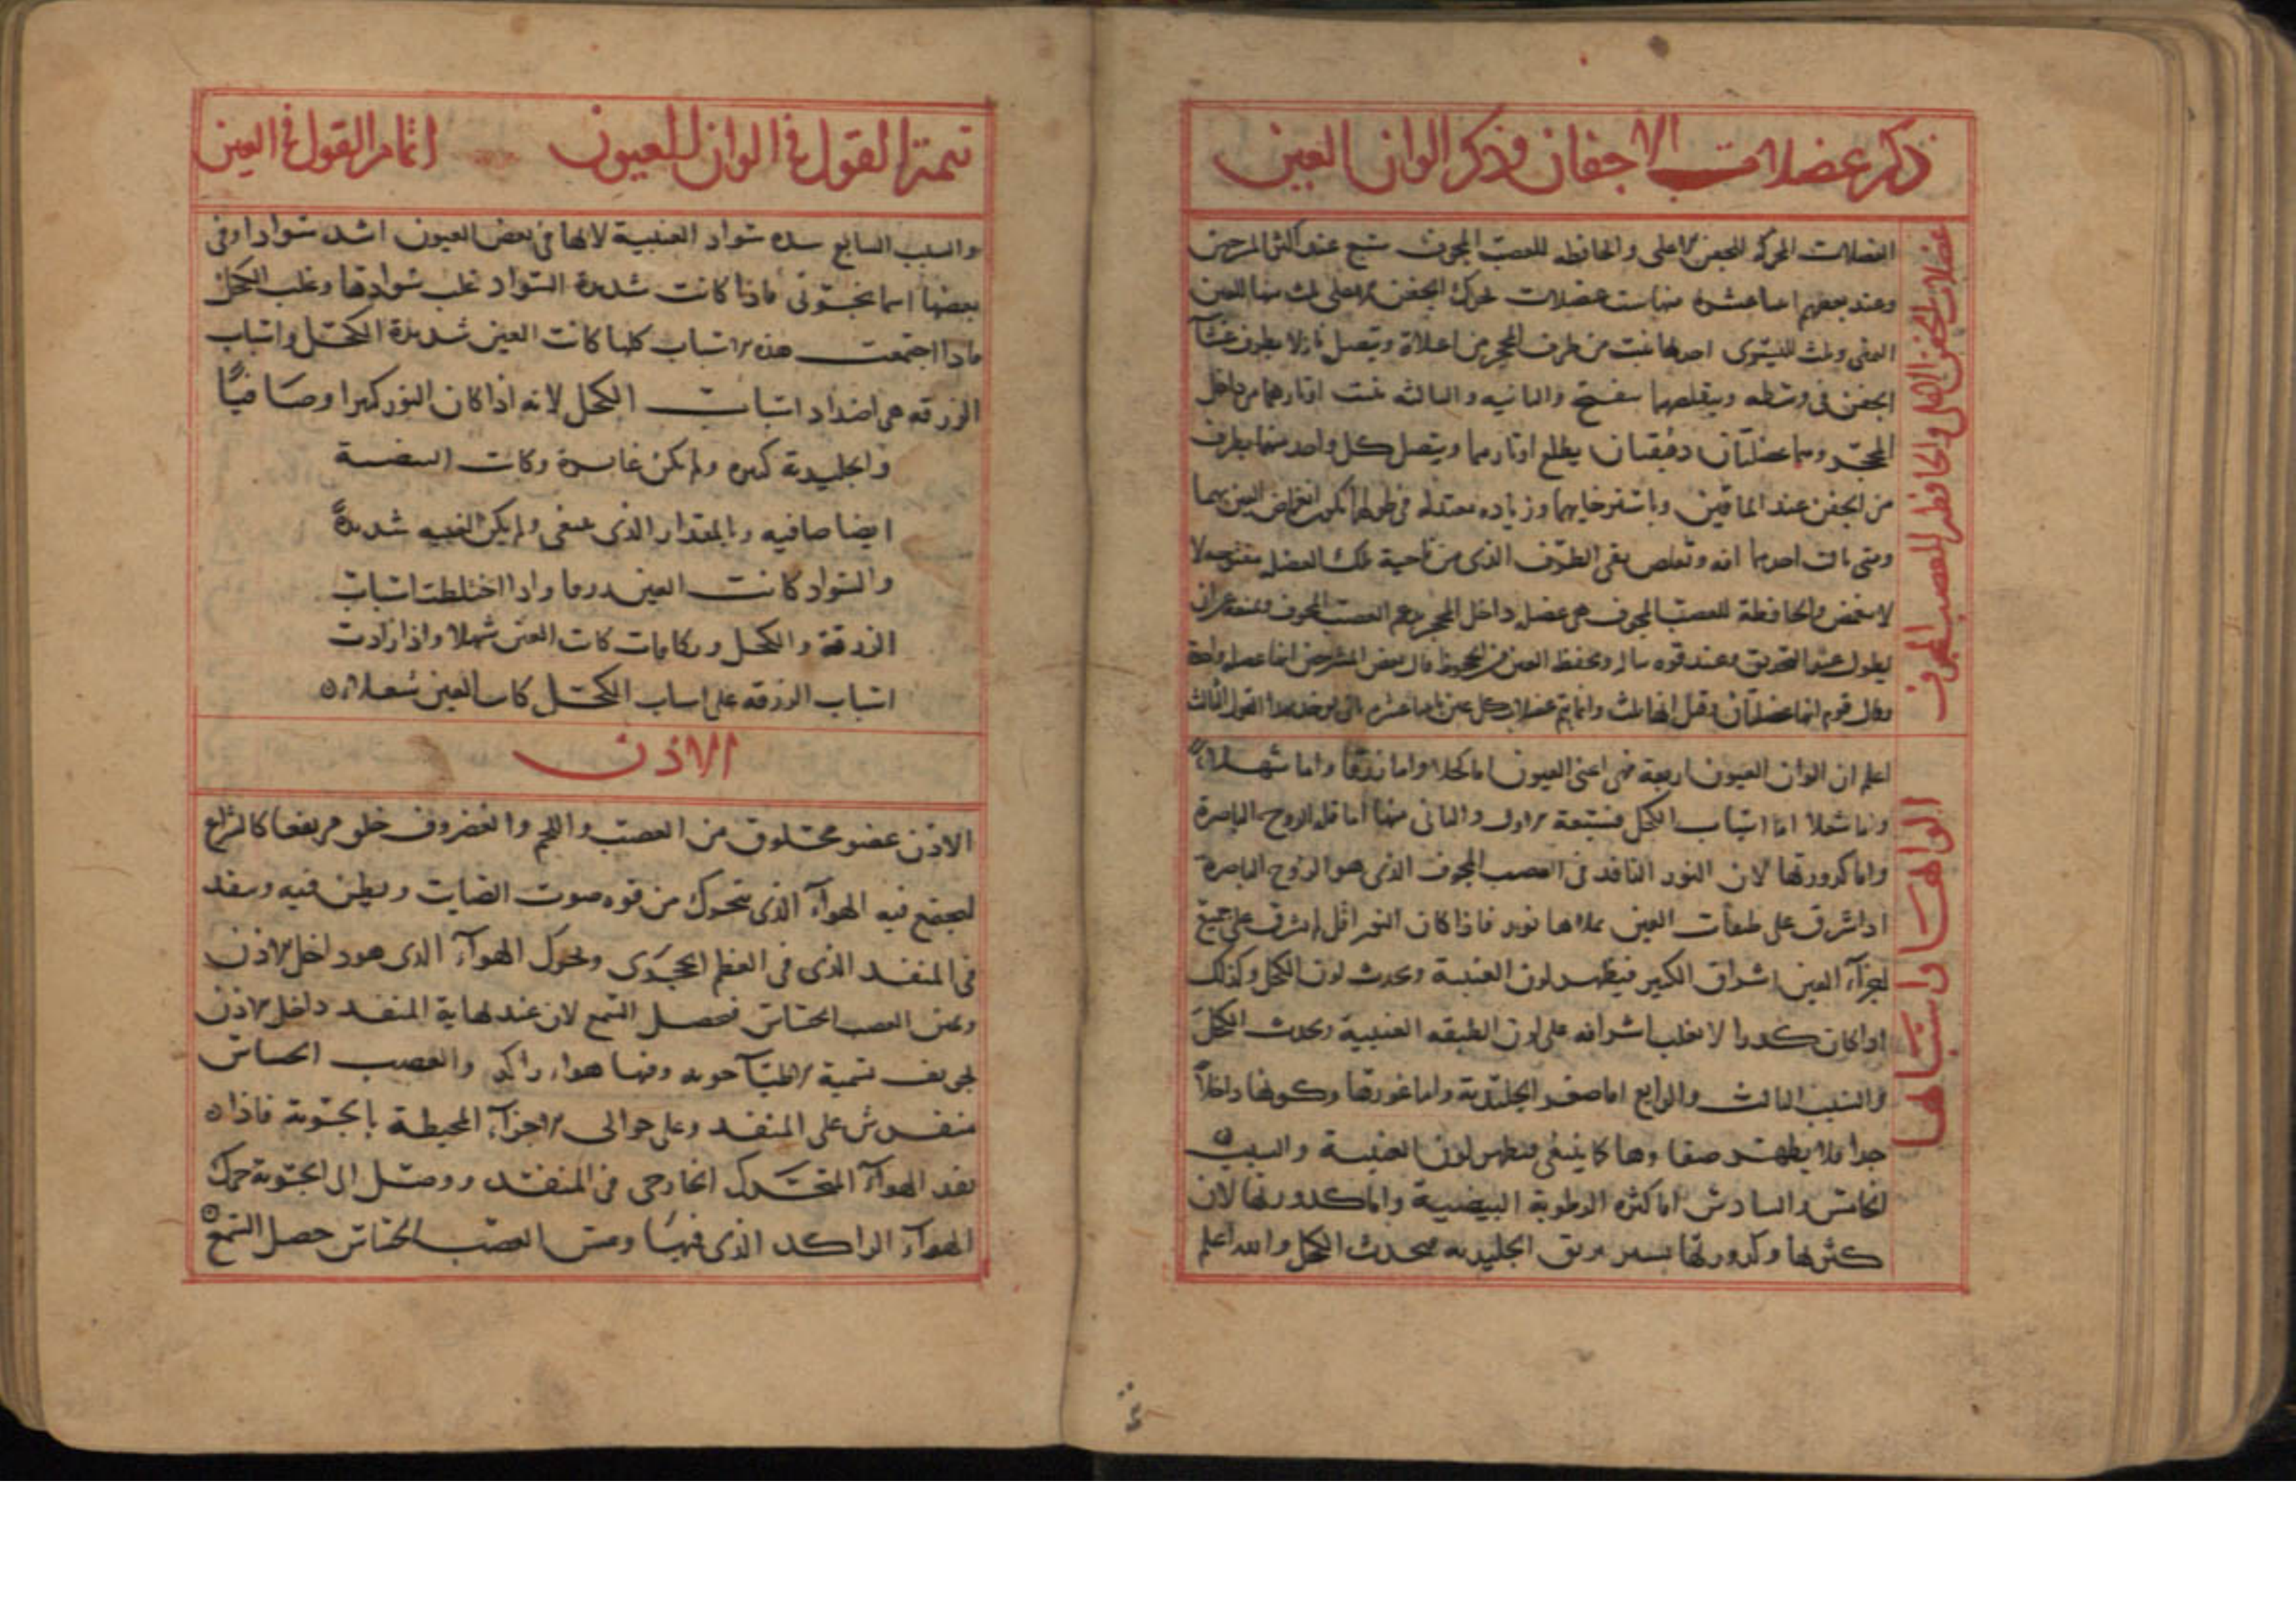 ذكر عضلات الاجفان وذكر الوان العين
عضلات الجفن الاعلى والحافظه للعصب المجوف
العضلات المحركه للجفن الاعلى والحافظه للعصب المجوف تسع عند اكثر المشرحين
وعند بعضهم عشره منها ست عضلات تحرك الجفن الاعلى ثلث منها للعين
اليمنى وثلث لليسرى احدها تنبت من طرف المحجر من اعلاه ويتصل نازلا بطرف غشآ
الجفن فى وسطه وبتقلصها ينفتح والثانيه والثالثه تنبت اوتارهما من داخل
المحجر وهما عضلتان دقيقتان يطلع اوتارهما ويتصل كل واحد منهما بطرف
من الجفن عند الماقين وباسترخايهما وزياده معتدله فى طولهما يكون انغماض العين بهما
ومتى نالت احدهما افه وتقلص بقى الطرف الذى من ناحية تلك العضله مفتوحا لا
لا ينغمض والحافظة للعصب المجوف هى عضل داخل المحجر يدعم العصب المجوف ويمنعه من ان
يطول عند التحديق وعند قوه ويحفظ العين من الجحوظ قال بعض المشرحين انها عضله واحدة
وقال قوم انها عضلتان وقيل انها ثلث
الوانها واسبابها
اعلم ان الوان العيون اربعة فهى اعنى العيون اما كحلا واما زرقا واما شهلا
واما شعلا اما اسباب الكحل فسبعة الاول والثانى منها اما قلة الروح الباصرة
واما كدورتها لان النور النافذ فى العصب المجوف الذى هو الروح الباصرة
اذا اشرق على طبقات العين ملاها نوره فاذا كان النور اقل لم يشرق على جميع
اجزآء العين اشراق الكثير فيظهر لون العنبية ويحدث لون الكحل وكذلك
اذا كان كدرا لا يغلب اشراقه على لون الطبقه العنبية ويحدث الكحل
والسبب الثالث والرابع اما صغر الجليدية واما غورها وكونها داخلاً
جدا فلا يظهر صفاوها كما ينبغى فيظهر لون العنبية والسبب
الخامس والسادس اما كثرة الرطوبة البيضية واما كدورتها لان
كثرتها وكدورتها يستر بريق الجليديه فيحدث الكحل والله اعلم
تتمة القول فى الوان العيون اتمام القول فى العين
والسبب السابع شده سواد العنبية لانها فى بعض العيون اشد سوادا وفى
بعضها اسمانجونى فاذا كانت شديدة السواد غلب سوادها وغلب الكحل
فاذا اجتمعت هذه الاسباب كلها كانت العين شديدة الكحل واسباب
الزرقه هى اضداد اسباب الكحل لانه اذا كان النور كثيرا وصافياً
والجليدية كبيره ولم يكن غايرة وكانت البيضية
ايضا صافيه وبالمقدار الذى ينبغى ولم يكن العنبيه شديدة
والسواد كانت العين زرقا واذا اختلطت اسباب
الزرقة والكحل وتكافات كانت العين شهلا واذا زادت
اسباب الزرقه على اسباب الكحل كانت العين شعلا
الاذن
الاذن عضو مخلوق من العصب واللحم والغضروف خلق مرتفعا كالشراع
ليجتمع فيه الهوآء الذى يتحرك من قوه صوت الصايت ويطن فيه وينفد
فى المنفد الذى فى العظم الحجرى ويحرك الهوآء الذى هو داخل الاذن
ويمس العصب الحساس فيحصل السمع لان عند نهاية المنفد داخل الاذن
تجويف تسمية الاطبآ جوبه وفيها هواء راكد والعصب الحساس
منفرش على المنفد وعلى حوالى الاجزآء المحيطة بالجوبة فاذا
نفد الهوآء المتحرك الخارجى فى المنفد ووصل الى الجوبة حرك
الهوآء الراكد الذى فيها ومس العصب الحساس حصل السمع